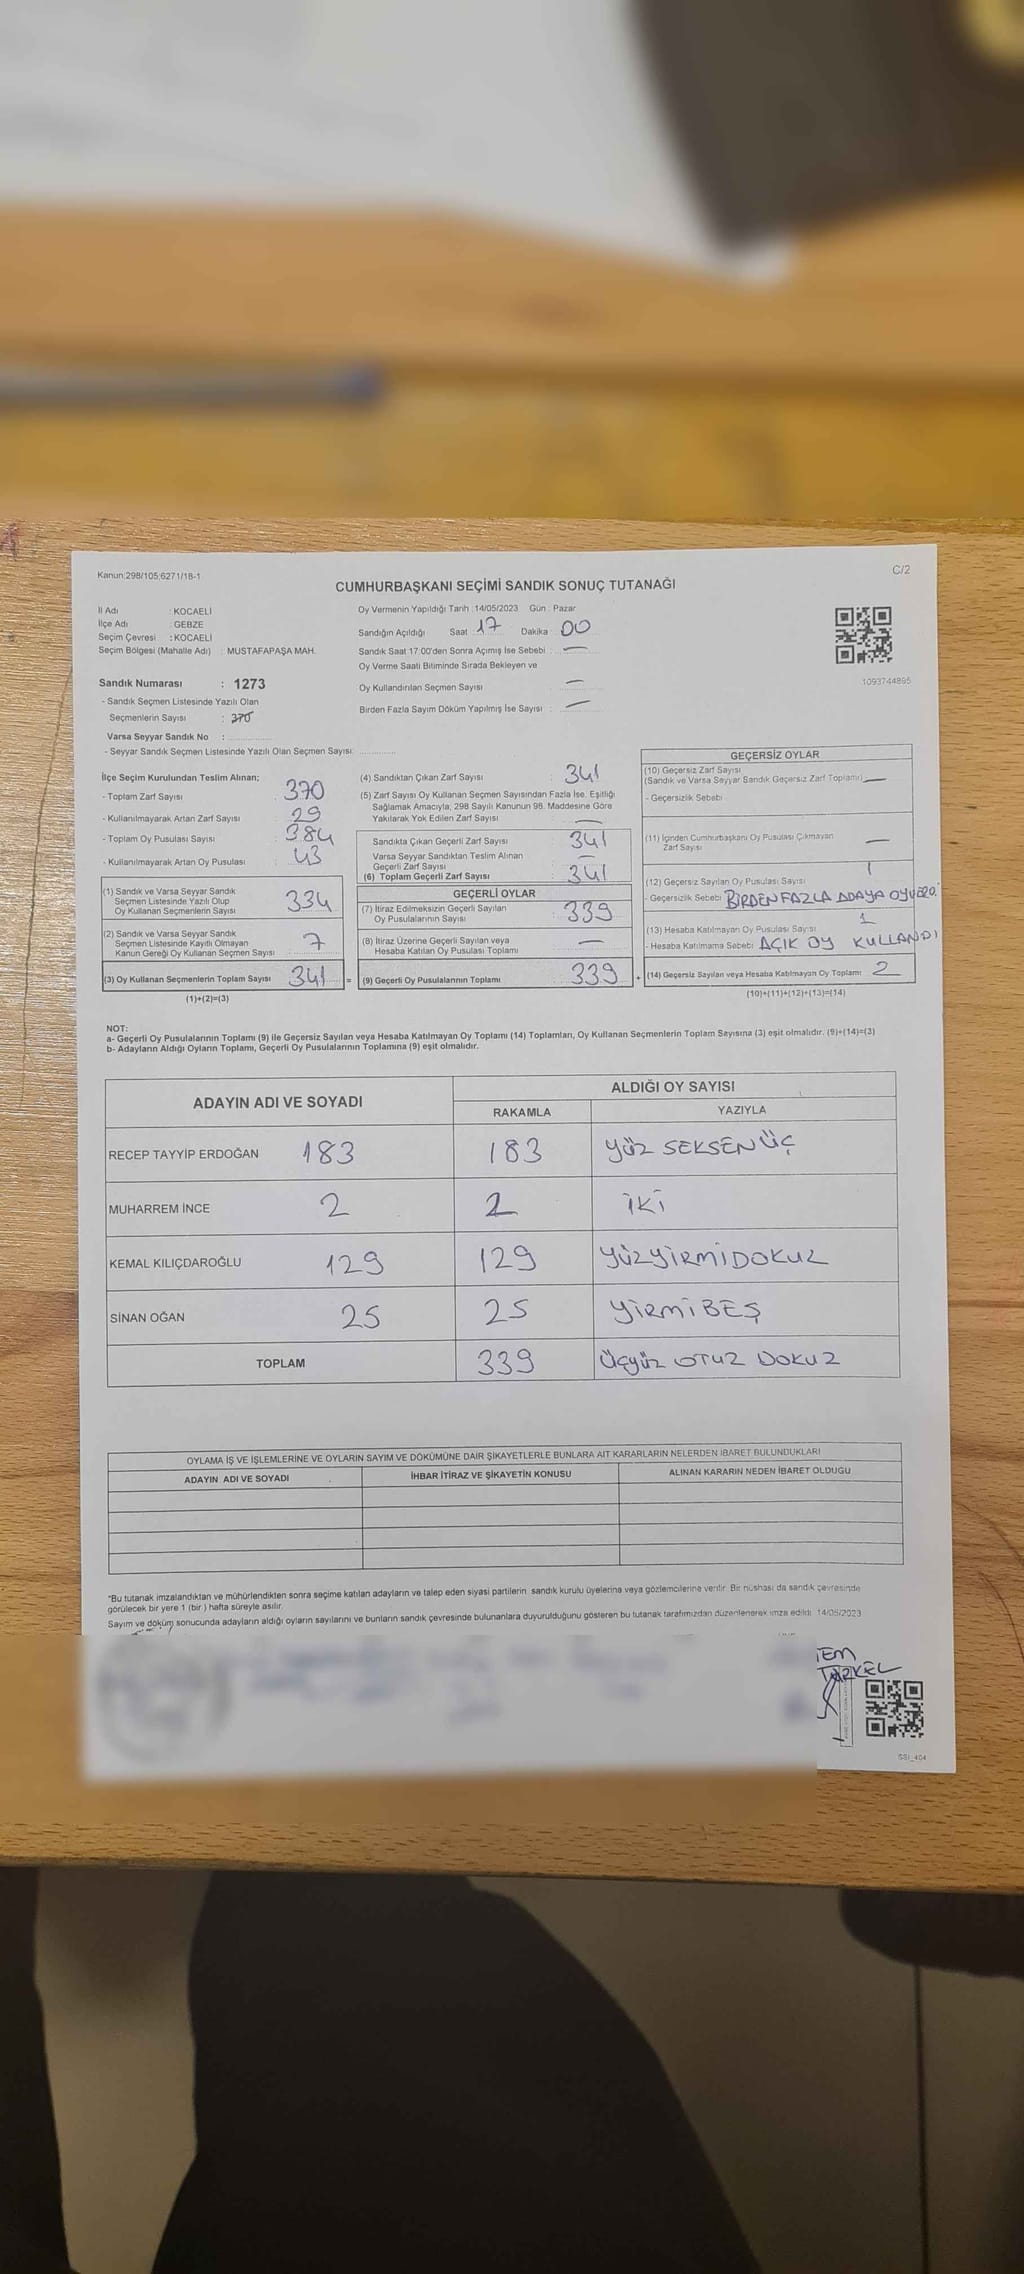 Kanun:298/105;6271/18-1
C/2
CUMHURBAŞKANI SEÇİMİ SANDIK SONUÇ TUTANAĞI
İl Adı : KOCAELİ
İlçe Adı : GEBZE
Seçim Çevresi : KOCAELİ
Seçim Bölgesi (Mahalle Adı) : MUSTAFAPAŞA MAH.
Sandık Numarası : 1273
- Sandık Seçmen Listesinde Yazılı Olan
Seçmenlerin Sayısı : 370
Varsa Seyyar Sandık No :
- Seyyar Sandık Seçmen Listesinde Yazılı Olan Seçmen Sayısı:
Oy Vermenin Yapıldığı Tarih : 14/05/2023 Gün : Pazar
Sandığın Açıldığı Saat : 17 Dakika : 00
Sandık Saat 17:00'den Sonra Açımış İse Sebebi : —
Oy Verme Saati Bitiminde Sırada Bekleyen ve
Oy Kullandırılan Seçmen Sayısı : —
Birden Fazla Sayım Döküm Yapılmış İse Sayısı : —
1093744895
İlçe Seçim Kurulundan Teslim Alınan;
- Toplam Zarf Sayısı : 370
- Kullanılmayarak Artan Zarf Sayısı : 29
- Toplam Oy Pusulası Sayısı : 384
- Kullanılmayarak Artan Oy Pusulası : 43
(1) Sandık ve Varsa Seyyar Sandık
Seçmen Listesinde Yazılı Olup
Oy Kullanan Seçmenlerin Sayısı 334
(2) Sandık ve Varsa Seyyar Sandık
Seçmen Listesinde Kayıtlı Olmayan
Kanun Gereği Oy Kullanan Seçmen Sayısı 7
(3) Oy Kullanan Seçmenlerin Toplam Sayısı 341 =
(1)+(2)=(3)
(4) Sandıktan Çıkan Zarf Sayısı : 341
(5) Zarf Sayısı Oy Kullanan Seçmen Sayısından Fazla İse, Eşitliği
Sağlamak Amacıyla; 298 Sayılı Kanunun 98. Maddesine Göre
Yakılarak Yok Edilen Zarf Sayısı : —
Sandıkta Çıkan Geçerli Zarf Sayısı : 341
Varsa Seyyar Sandıktan Teslim Alınan
Geçerli Zarf Sayısı : —
(6) Toplam Geçerli Zarf Sayısı : 341
GEÇERLİ OYLAR
(7) İtiraz Edilmeksizin Geçerli Sayılan
Oy Pusulalarının Sayısı : 339
(8) İtiraz Üzerine Geçerli Sayılan veya
Hesaba Katılan Oy Pusulası Toplamı : —
(9) Geçerli Oy Pusulalarının Toplamı : 339 +
GEÇERSİZ OYLAR
(10) Geçersiz Zarf Sayısı
(Sandık ve Varsa Seyyar Sandık Geçersiz Zarf Toplamı) —
- Geçersizlik Sebebi :
(11) İçinden Cumhurbaşkanı Oy Pusulası Çıkmayan
Zarf Sayısı : —
(12) Geçersiz Sayılan Oy Pusulası Sayısı : 1
- Geçersizlik Sebebi : BİRDEN FAZLA ADAYA OY
(13) Hesaba Katılmayan Oy Pusulası Sayısı : 1
- Hesaba Katılmama Sebebi : AÇIK OY KULLANDI
(14) Geçersiz Sayılan veya Hesaba Katılmayan Oy Toplamı : 2
(10)+(11)+(12)+(13)=(14)
NOT:
a- Geçerli Oy Pusulalarının Toplamı (9) ile Geçersiz Sayılan veya Hesaba Katılmayan Oy Toplamı (14) Toplamları, Oy Kullanan Seçmenlerin Toplam Sayısına (3) eşit olmalıdır. (9)+(14)=(3)
b- Adayların Aldığı Oyların Toplamı, Geçerli Oy Pusulalarının Toplamına (9) eşit olmalıdır.
ADAYIN ADI VE SOYADI
ALDIĞI OY SAYISI
RAKAMLA YAZIYLA
RECEP TAYYİP ERDOĞAN 183 183 YÜZ SEKSEN ÜÇ
MUHARREM İNCE 2 2 İKİ
KEMAL KILIÇDAROĞLU 129 129 YÜZYİRMİDOKUZ
SİNAN OĞAN 25 25 YİRMİBEŞ
TOPLAM 339 ÜÇYÜZ OTUZ DOKUZ
OYLAMA İŞ VE İŞLEMLERİNE VE OYLARIN SAYIM VE DÖKÜMÜNE DAİR ŞİKAYETLERLE BUNLARA AİT KARARLARIN NELERDEN İBARET BULUNDUKLARI
ADAYIN ADI VE SOYADI İHBAR İTİRAZ VE ŞİKAYETİN KONUSU ALINAN KARARIN NEDEN İBARET OLDUĞU
*Bu tutanak imzalandıktan ve mühürlendikten sonra seçime katılan adayların ve talep eden siyasi partilerin sandık kurulu üyelerine veya gözlemcilerine verilir. Bir nüshası da sandık çevresinde
görülecek bir yere 1 (bir ) hafta süreyle asılır.
Sayım ve döküm sonucunda adayların aldığı oyların sayılarını ve bunların sandık çevresinde bulunanlara duyurulduğunu gösteren bu tutanak tarafımızdan düzenlenerek imza edildi. 14/05/2023
SSI_404